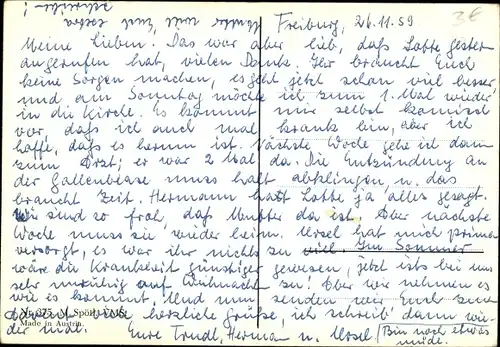 Freiburg, 26.11.59
3€
Meine Lieben. Das war aber lieb, daß Lotte gestern
angerufen hat, vielen Dank. Ihr braucht Euch
keine Sorgen machen, es geht jetzt schon viel besser,
und am Sonntag möchte ich zum 1. Mal wieder
in die Kirche. Es kommt mir selbst komisch
vor, daß ich auch mal krank bin, aber ich
hoffe, daß es herum ist. Nächste Woche gehe ich dann
zum Arzt; er war 2 Mal da. Die Entzündung an
der Gallenblase muss halt abklingen, u. das
braucht Zeit. Hermann hat Lotte ja alles gesagt.
Wir sind so froh, daß Mutter da ist. Aber nächste
Woche muss sie wieder heim. Ursel hat mich prima
versorgt, es war ihr nichts zu viel. Im Sommer
wäre die Krankheit günstiger gewesen, jetzt ists bei uns
sehr unruhig auf Weihnacht zu! Aber wir nehmen es
wie es kommt. Und nun senden wir Euch
herzliche Grüße, ich schreib' dann wie-
der mal. Eure Trudl, Herman u. Ursel. (Bin noch etwas
müde.)
Nr. 375
Made in Austria